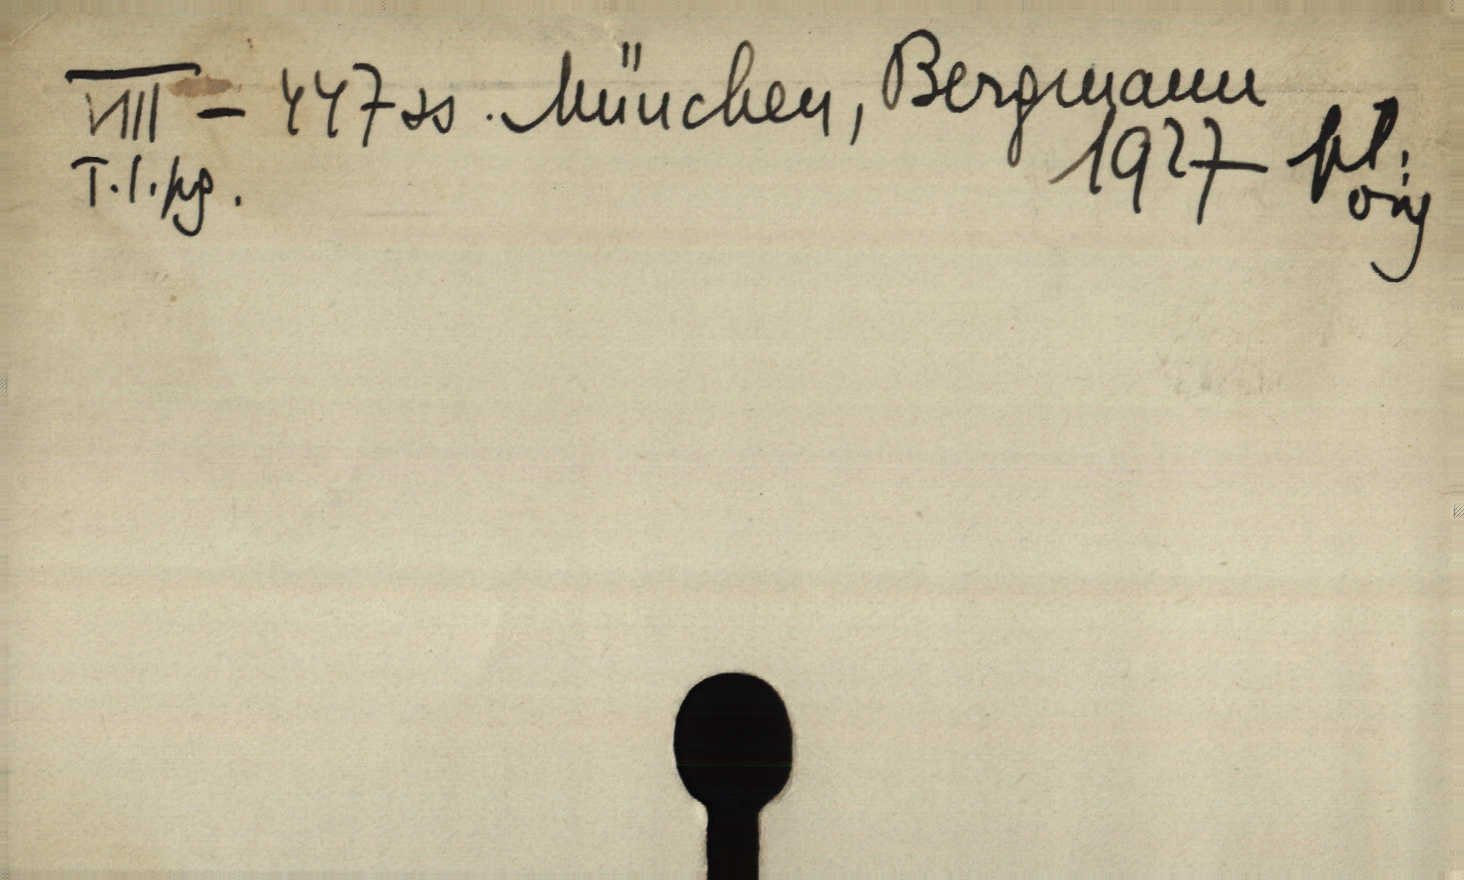 VIII – 447 ss. München, Bergmann
1927 pl.
T. 1. pg. orig